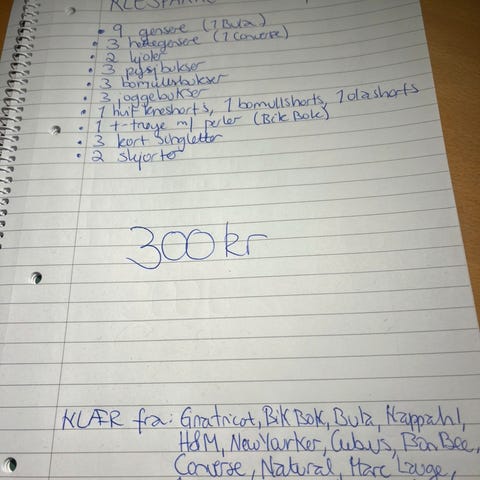 KLESPAKKE
• 9 gensere (1 Bula)
• 3 hettegensere (1 Converse)
• 2 kjoler
• 3 pysjbukser
• 3 bomullsbukser
• 3 joggebukser
• 1 hvit kneshorts, 1 bomullshorts, 1 olashorts
• 1 t-trøye m/ perler (Bik Bok)
• 3 kort singletter
• 2 skjorter
300 kr
KLÆR fra: Ginatricot, Bik Bok, Bula, Kappahl,
H&M, NewYorker, Cubus, Bon Bee,
Converse, Natural, Marc Lauge,